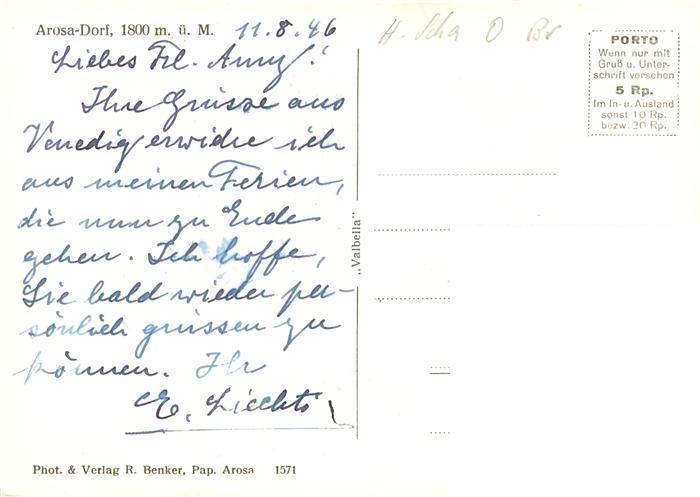 Arosa-Dorf, 1800 m. ü. M. 11.8.46
Liebes Frl. Anny!
Ihre Grüsse aus
Venedig erwidre ich
aus meinen Ferien,
die nun zu Ende
gehen. Ich hoffe,
Sie bald wieder per-
sönlich grüssen zu
können. Ihr
E. Liechti
Phot. & Verlag R. Benker, Pap. Arosa 1571
„Valbella"
H. Scha O Br
PORTO
Wenn nur mit
Gruß u. Unter-
schrift versehen
5 Rp.
Im In- u. Ausland
sonst 10 Rp.
bezw. 20 Rp.